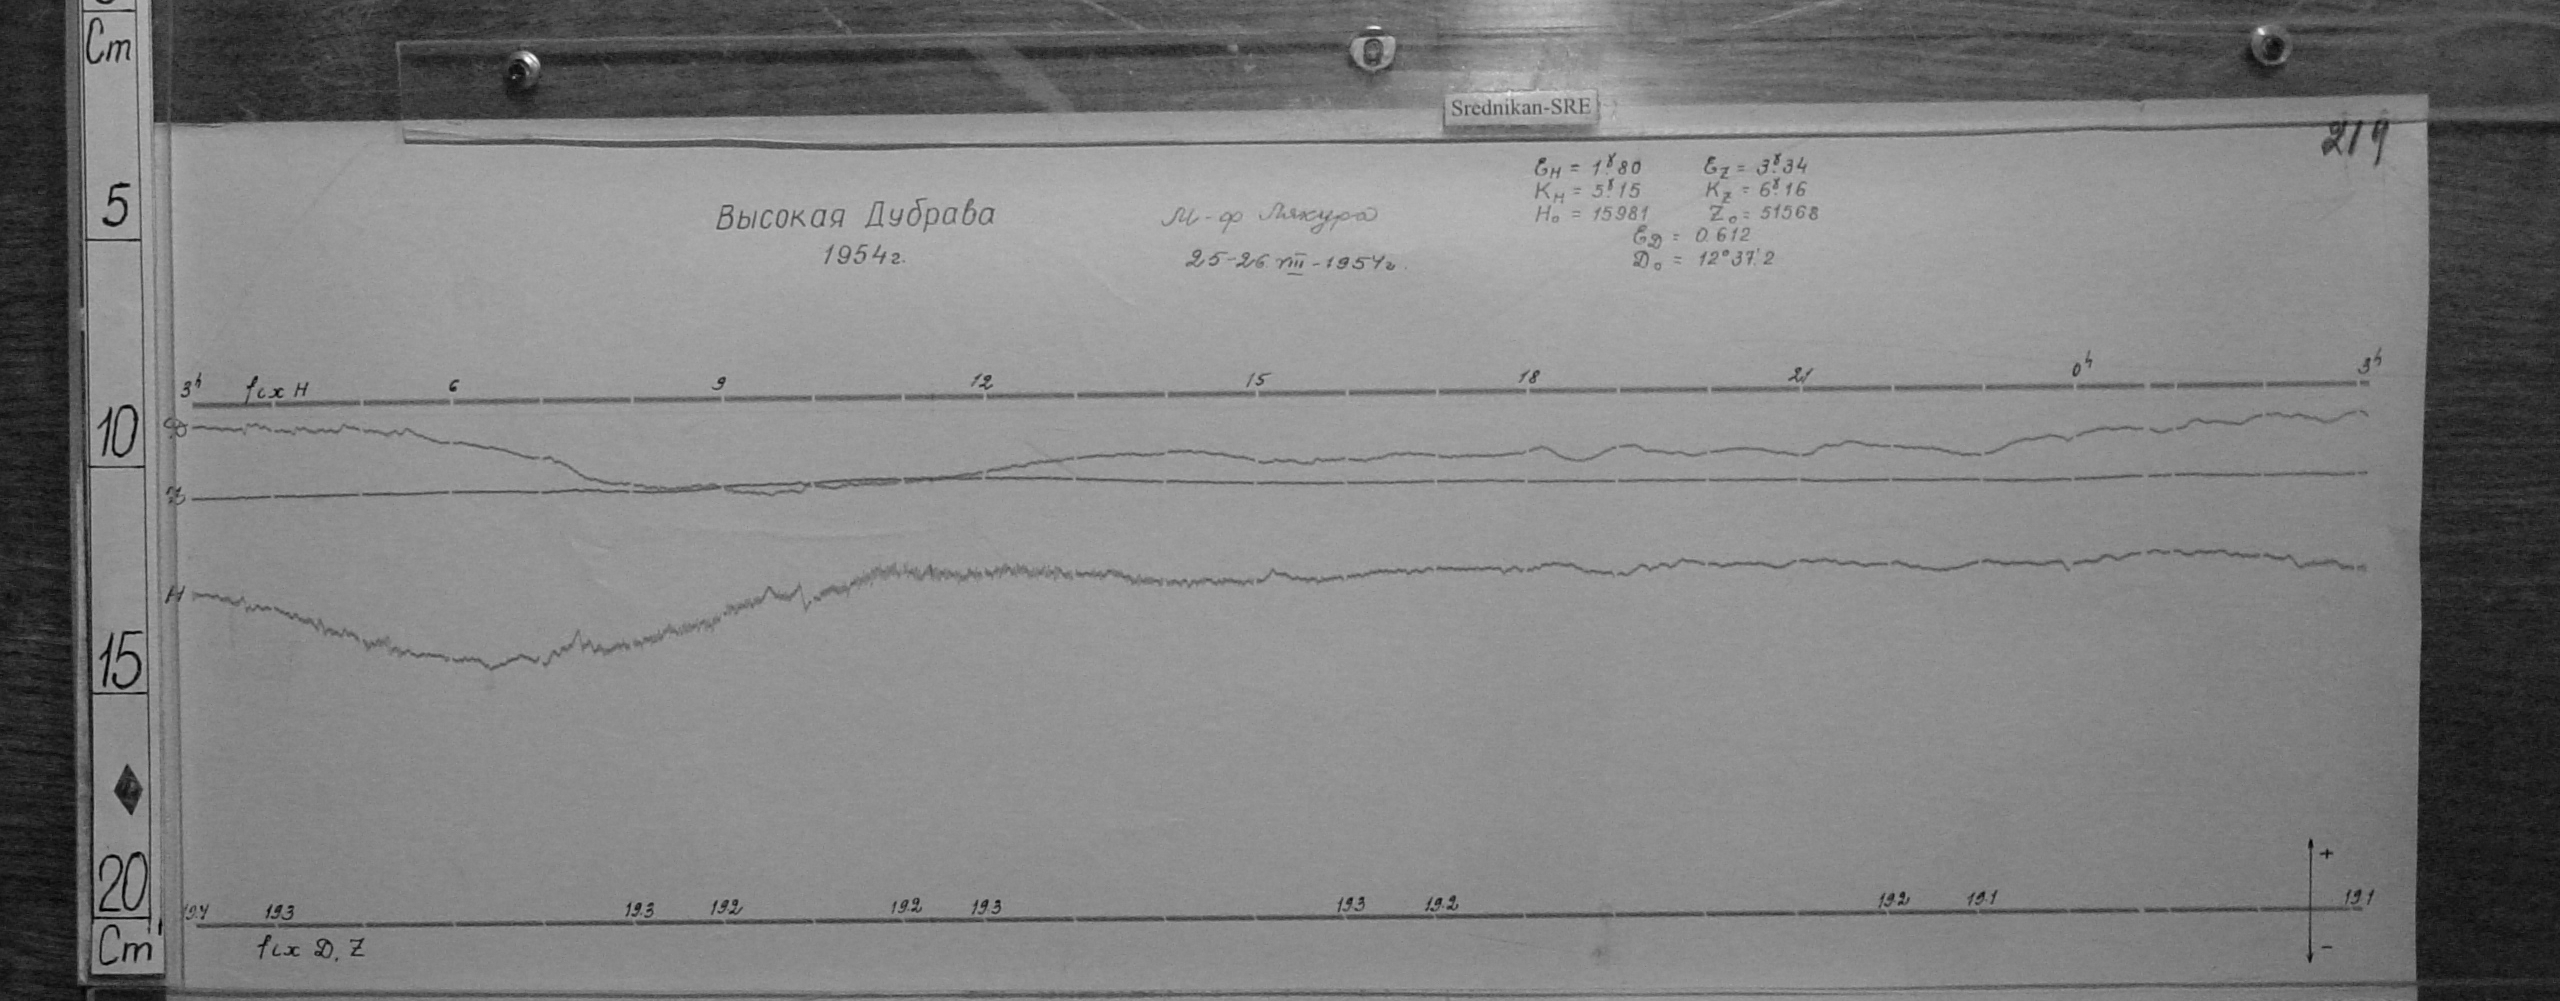 Cm
5
10
15
20
Cm
Srednikan-SRE
219
Высокая Дубрава
1954г.
М-ф Лякура
25-26 VIII-1954г.
ƐH = 1.ˠ80 ƐZ = 3.ˠ34
KH = 5.ˠ15 KZ = 6.ˠ16
H₀ = 15981 Z₀ = 51568
ƐD = 0.612
D₀ = 12°37.'2
3h 6 9 12 15 18 21 0h 3h
fix H
D
Z
H
19.4 19.3 19.3 19.2 19.2 19.3 19.3 19.2 19.2 19.1 19.1
fix D, Z
+
-